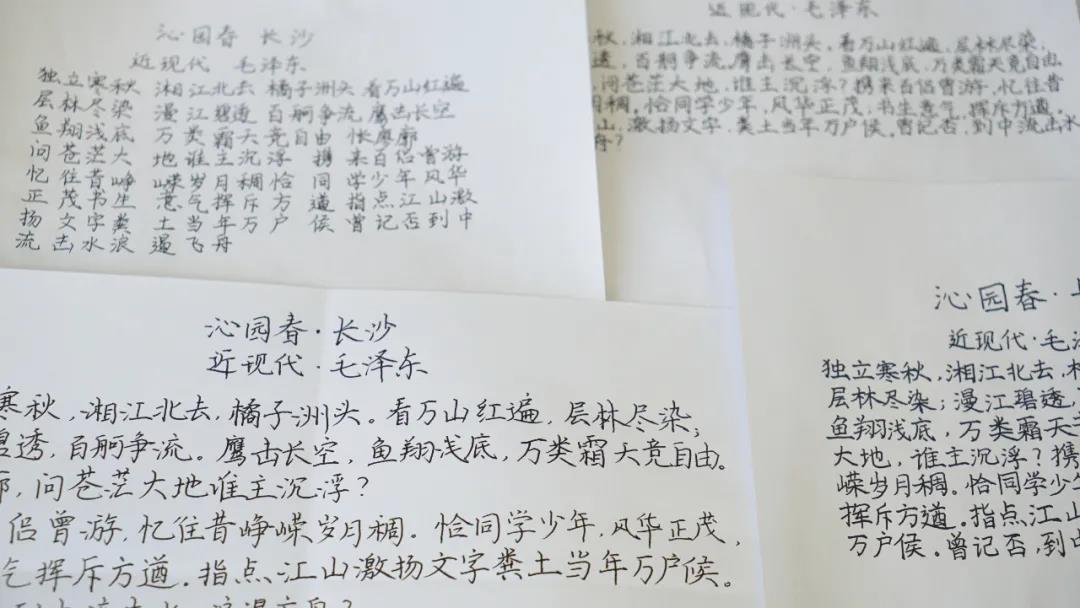 沁园春 长沙
近现代 毛泽东
独立寒秋 湘江北去 橘子洲头 看万山红遍
层林尽染 漫江碧透 百舸争流 鹰击长空
鱼翔浅底 万类霜天竞自由 怅廖廓
问苍茫大 地谁主沉浮 携来百侣曾游
忆住昔峥 嵘岁月稠恰 同学少年风华
正茂书生 意气挥斥方遒 指点江山激
扬文字粪 土当年万户 侯曾记否到中
流击水浪 遏飞舟
近现代·毛泽东
秋,湘江北去,橘子洲头,看万山红遍,层林尽染;
透,百舸争流,鹰击长空,鱼翔浅底,万类霜天竞自由
,问苍茫大地,谁主沉浮?携来百侣曾游,忆住昔
月稠。恰同学少年,风华正茂,书生意气,挥斥方遒。
山,激扬文字,粪土当年万户侯。曾记否,到中流击水
舟?
沁园春·长沙
近现代·毛泽东
寒秋,湘江北去,橘子洲头。看万山红遍,层林尽染;
碧透,百舸争流。鹰击长空,鱼翔浅底,万类霜天竞自由。
廓,问苍茫大地谁主沉浮?
侣曾游,忆住昔峥嵘岁月稠。恰同学少年,风华正茂,
气挥斥方遒。指点江山激扬文字粪土当年万户侯。
沁园春·
近现代·毛
独立寒秋,湘江北去,
层林尽染;漫江碧透,
鱼翔浅底,万类霜天
大地,谁主沉浮?携
嵘岁月稠。恰同学少
挥斥方遒。指点江山
万户侯。曾记否,到中